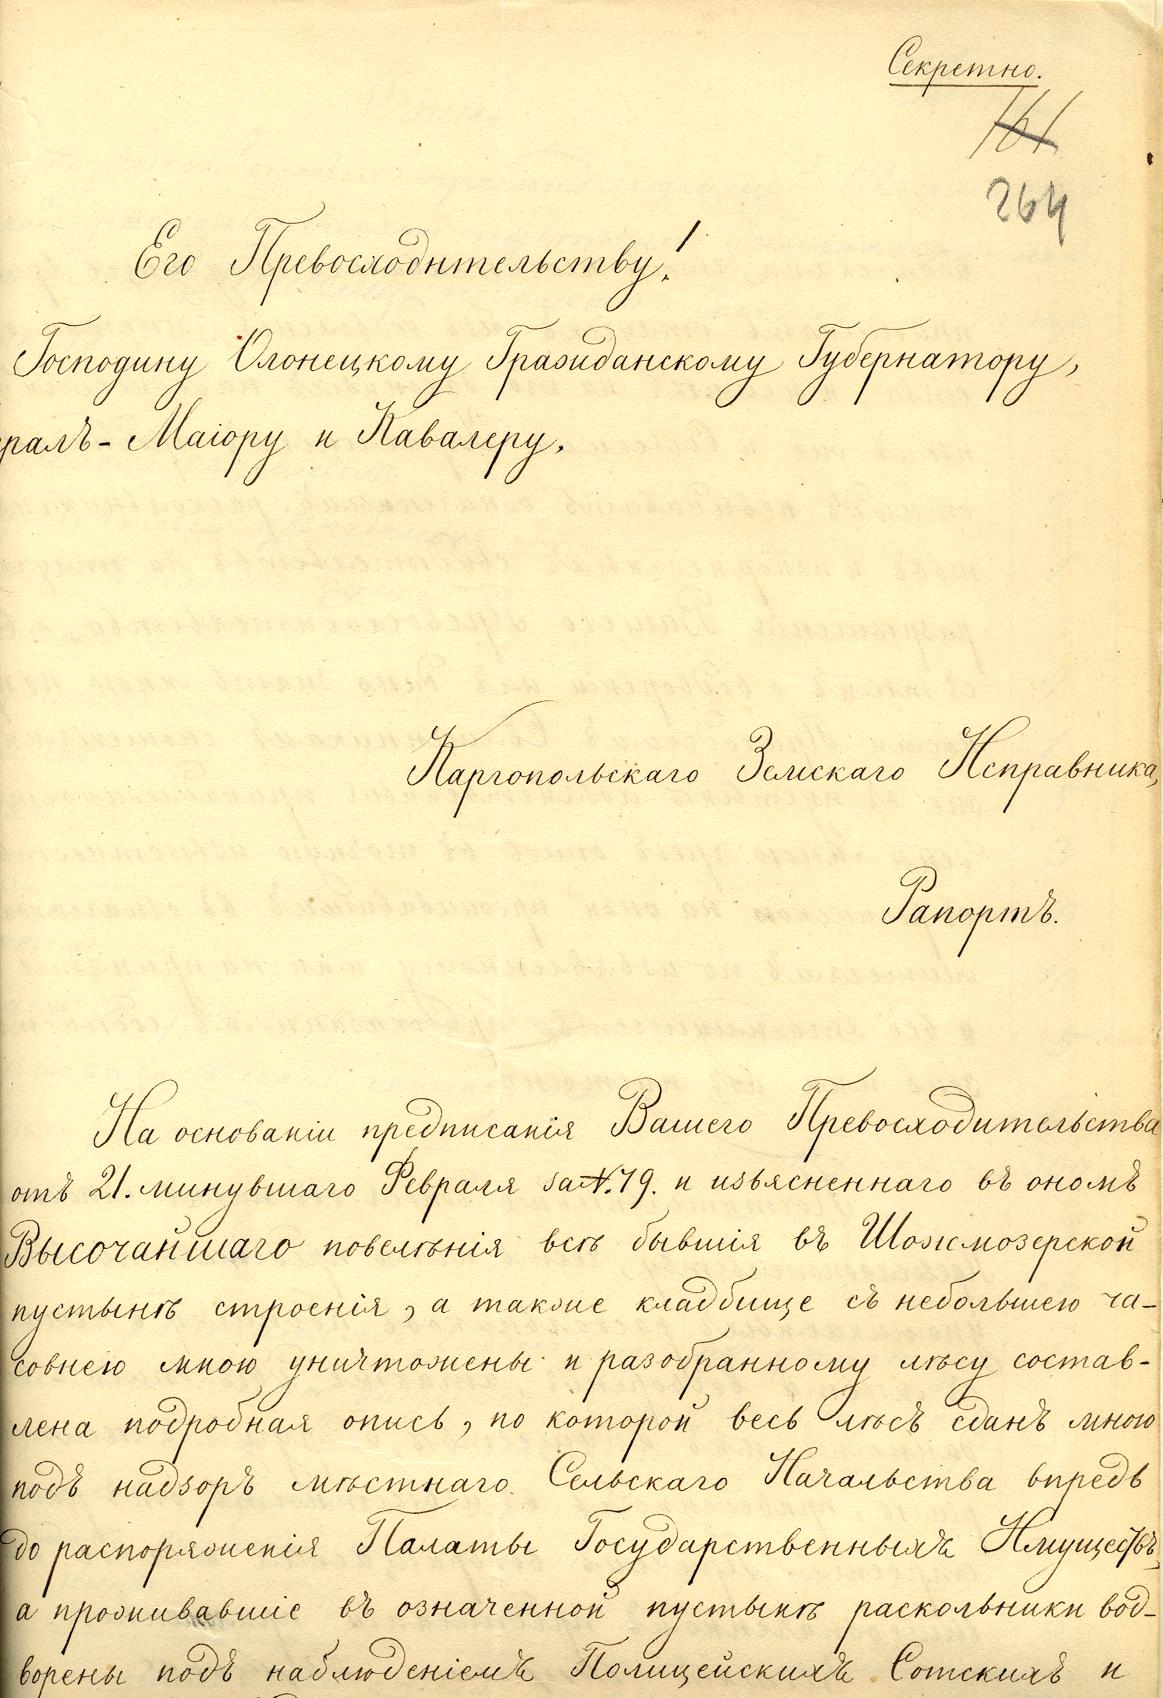 Секретно.
161
264
Его Превосходительству!
Господину Олонецкому Гражданскому Губернатору,
ралъ-Маіору и Кавалеру,
Каргопольскаго Земскаго Исправника,
Рапортъ.
На основаніи предписанія Вашего Превосходительства
отъ 21. минувшаго Февраля за N. 19. и изъясненнаго въ ономъ
Высочайшаго повелѣнія всѣ бывшія въ Шожмозерской
пустынѣ строенія, а также кладбище съ небольшею ча-
совнею мною уничтожены и разобранному лѣсу состав-
лена подробная опись, по которой весь лѣсъ сданъ мною
подъ надзоръ мѣстнаго Сельскаго Начальства впредь
до распоряженія Палаты Государственныхъ Имуществъ,
а проживавшіе въ означенной пустынѣ раскольники вод-
ворены подъ наблюденіемъ Полицейскихъ Сотскихъ и